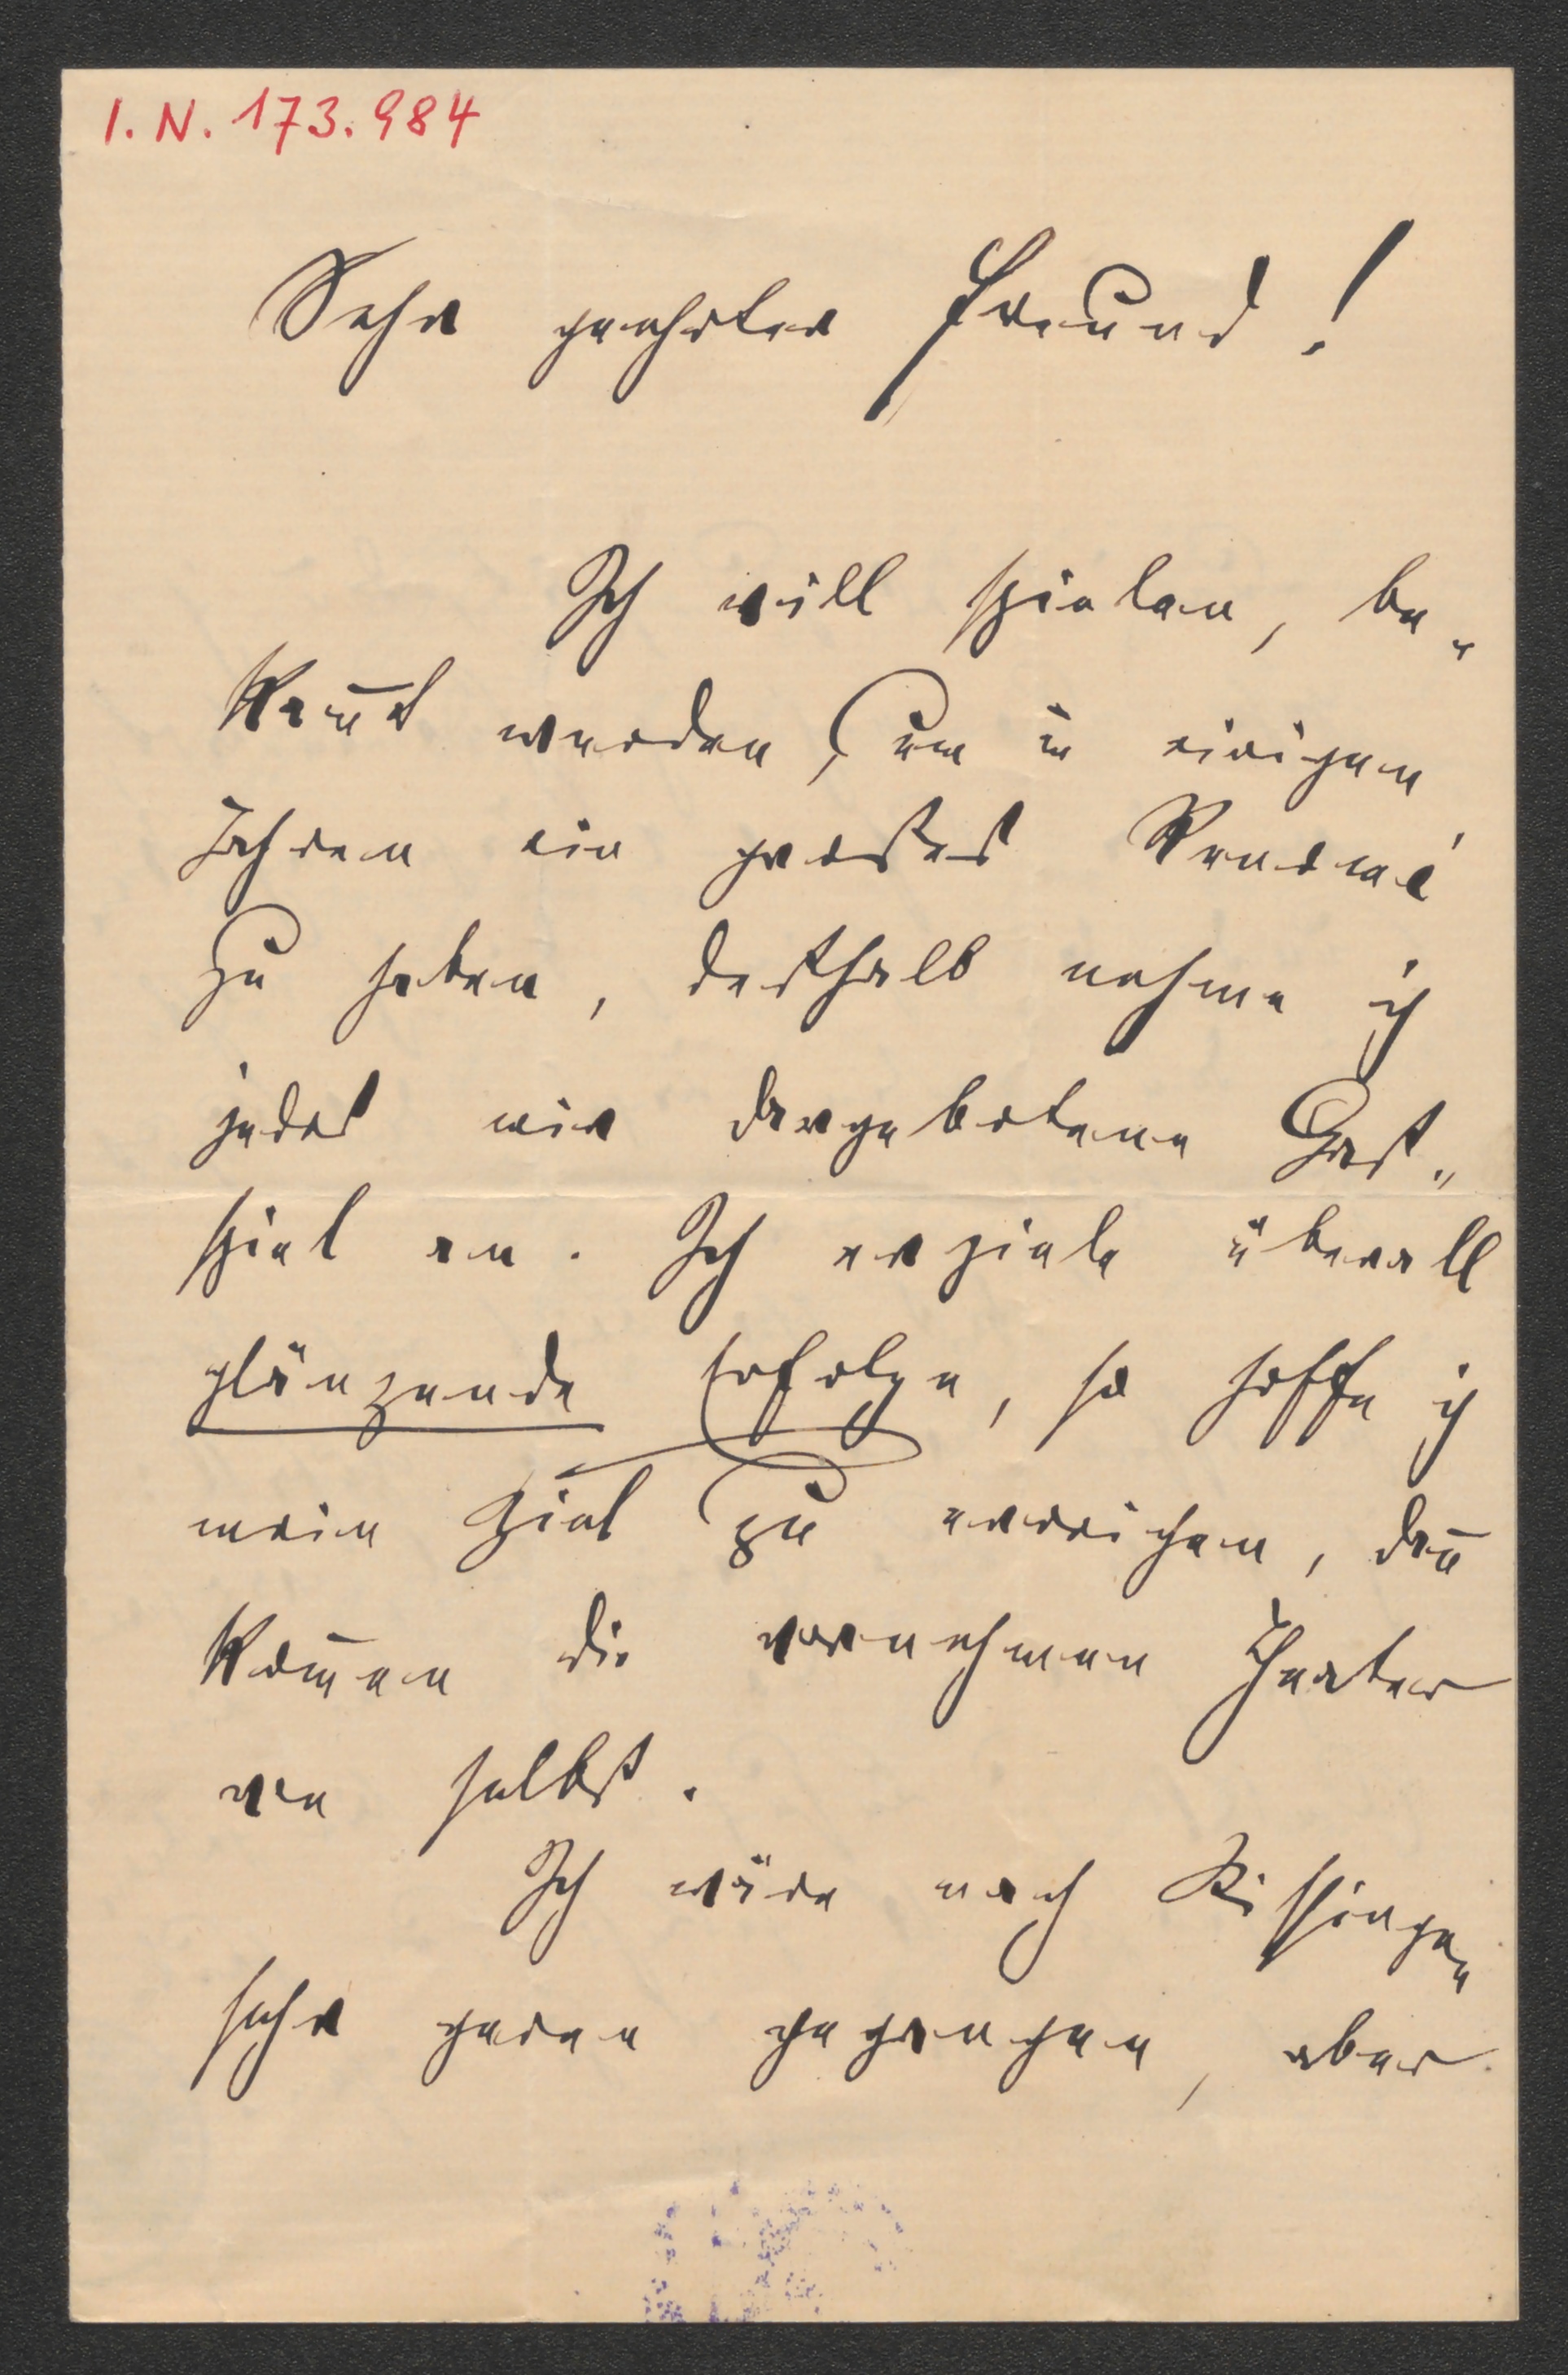 I. N. 173.984
Sehr geehrter Freund!
Ich will spielen, be„
kan̄t werden, um in einigen
Jahren ein großes Renomé
zu haben, desthalb nehme ich
jedes mir dargebotene Gast„
spiel an. Ich erziele überall
glänzende Erfolge, so hoffe ich
mein Ziel zu erreichen, dan̄
kom̄en die vornehmen Theater
von selbst.
Ich wäre nach Kissingen
sehr gerne gegangen, aber